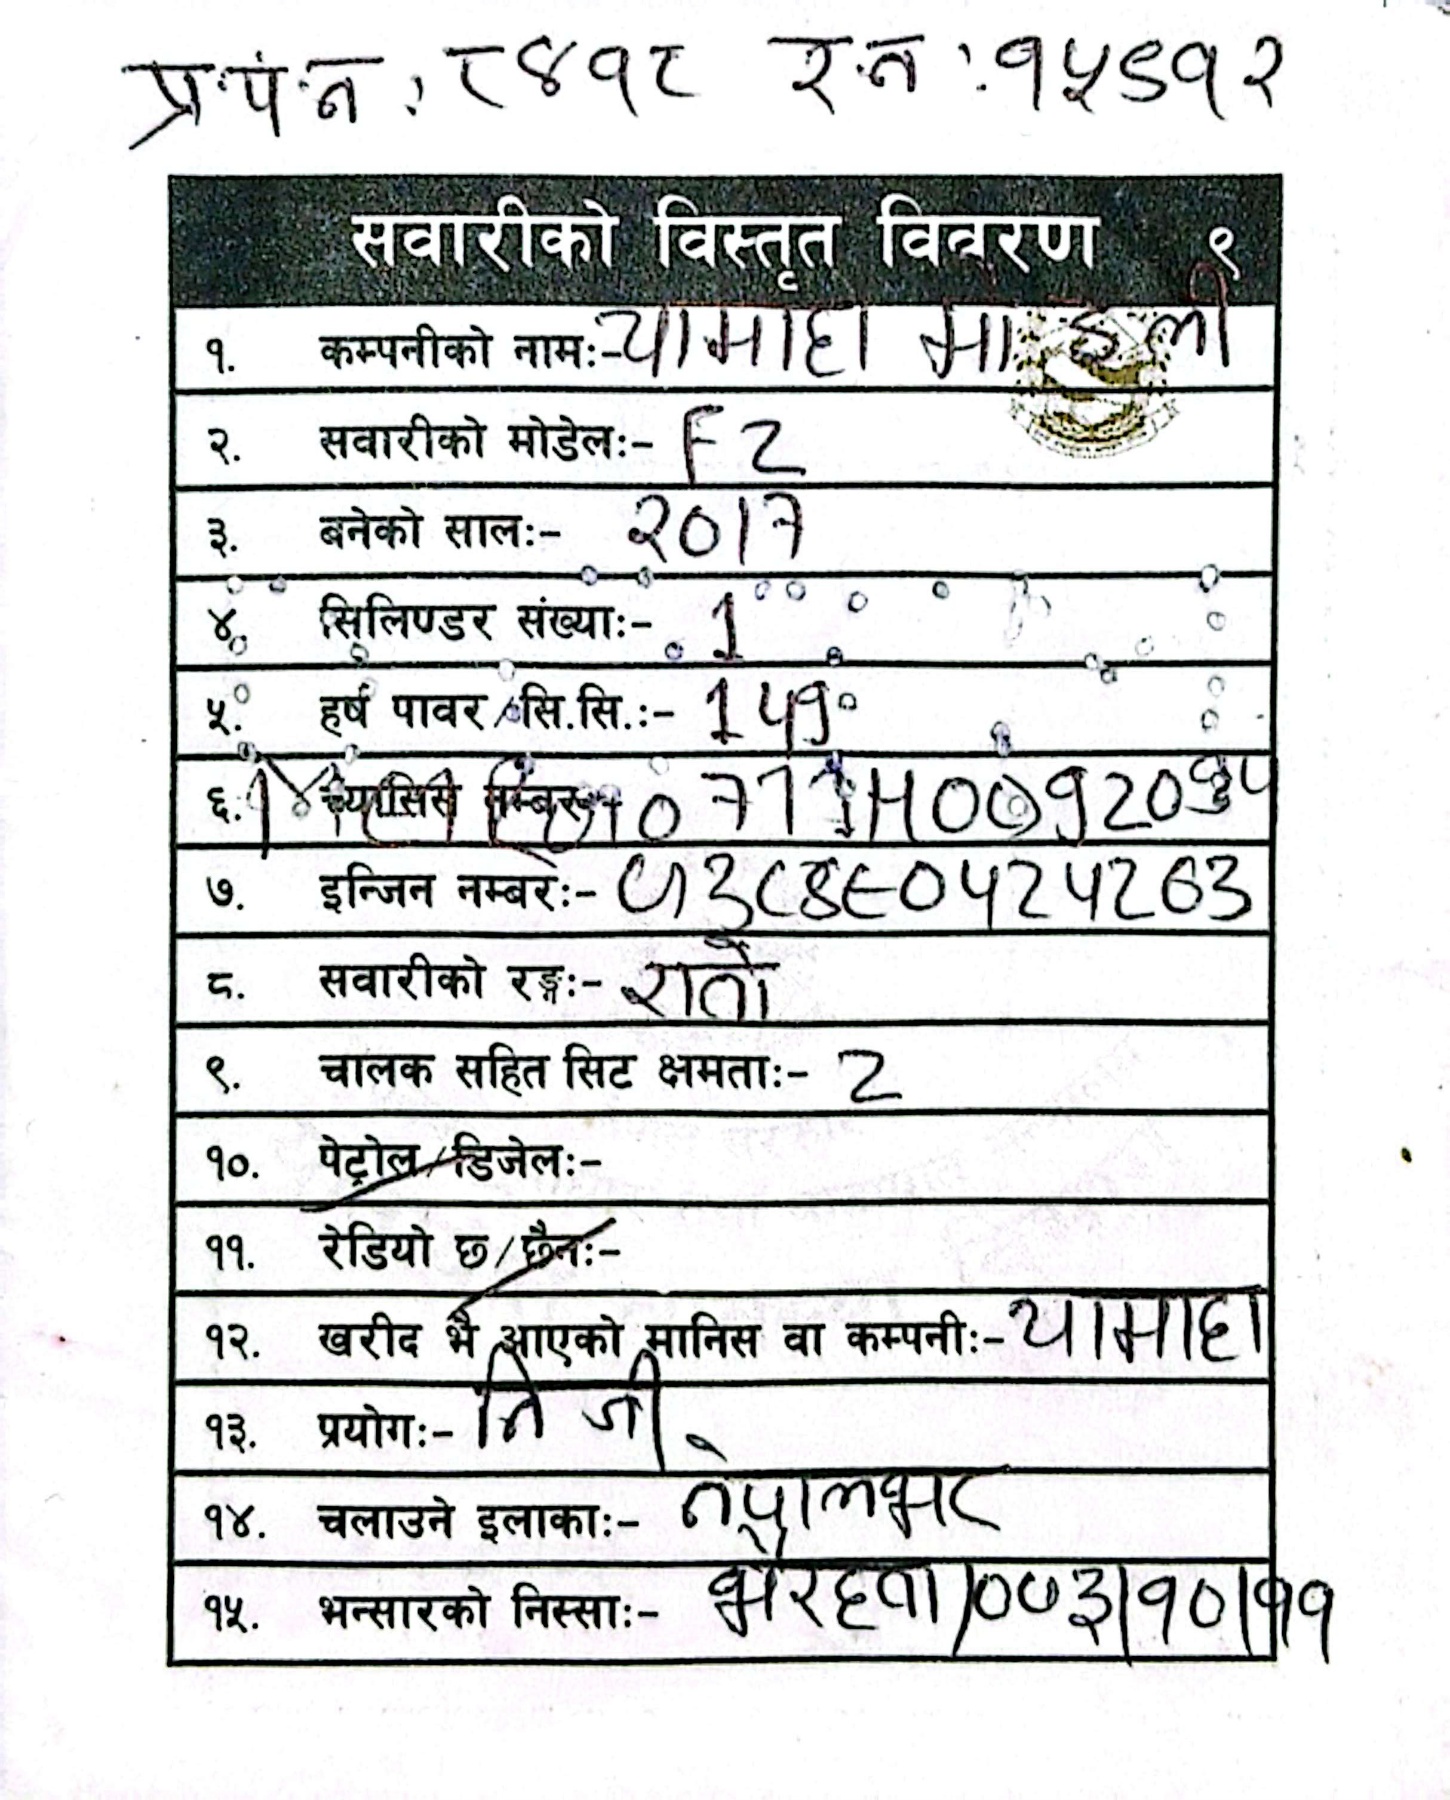 प्र.पं.नं: ८४१८ र.न: १५९१२
सवारीको विस्तृत विवरण ९
१. कम्पनीको नामः- यामाहा
२. सवारीको मोडेलः- FZ
३. बनेको सालः- 2017
४. सिलिण्डर संख्याः- 1
५. हर्ष पावर/सि.सि.ः- 149
६. च्यासिस नम्बरः-
७. इन्जिन नम्बरः-
८. सवारीको रङ्गः- रातो
९. चालक सहित सिट क्षमताः- 2
१०. पेट्रोल/डिजेलः-
११. रेडियो छ/छैनः-
१२. खरीद भै आएको मानिस वा कम्पनीः- यामाहा
१३. प्रयोगः- निजी
१४. चलाउने इलाकाः- नेपालभर
१५. भन्सारको निस्साः- भैरहवा/००३/१०/११